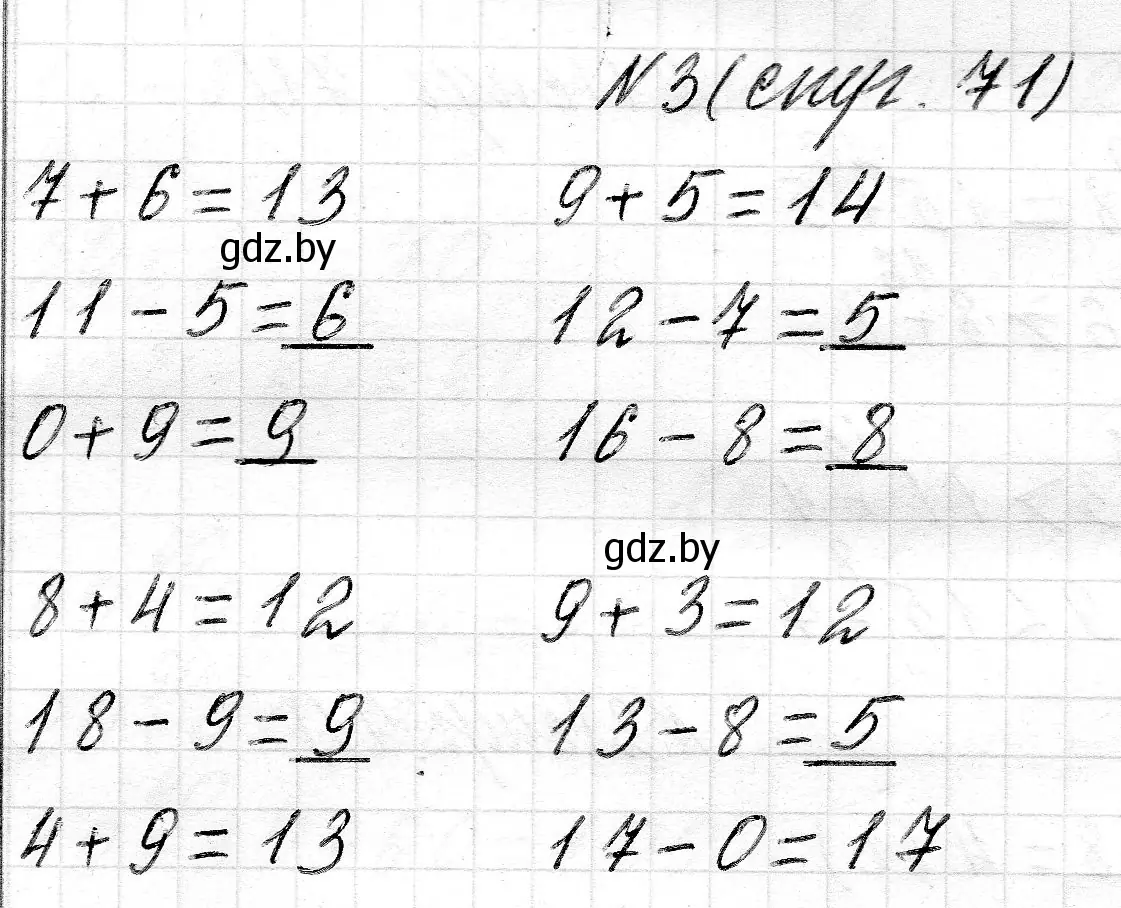 N 3 (
. 71)
7 + 6 = 13 9 + 5 = 14
gdz.by
11 - 5 = 6 12 - 7 = 5
0 + 9 = 9 16 - 8 = 8
gdz.by
8 + 4 = 12 9 + 3 = 12
18 - 9 = 9 13 - 8 = 5
4 + 9 = 13 17 - 0 = 17